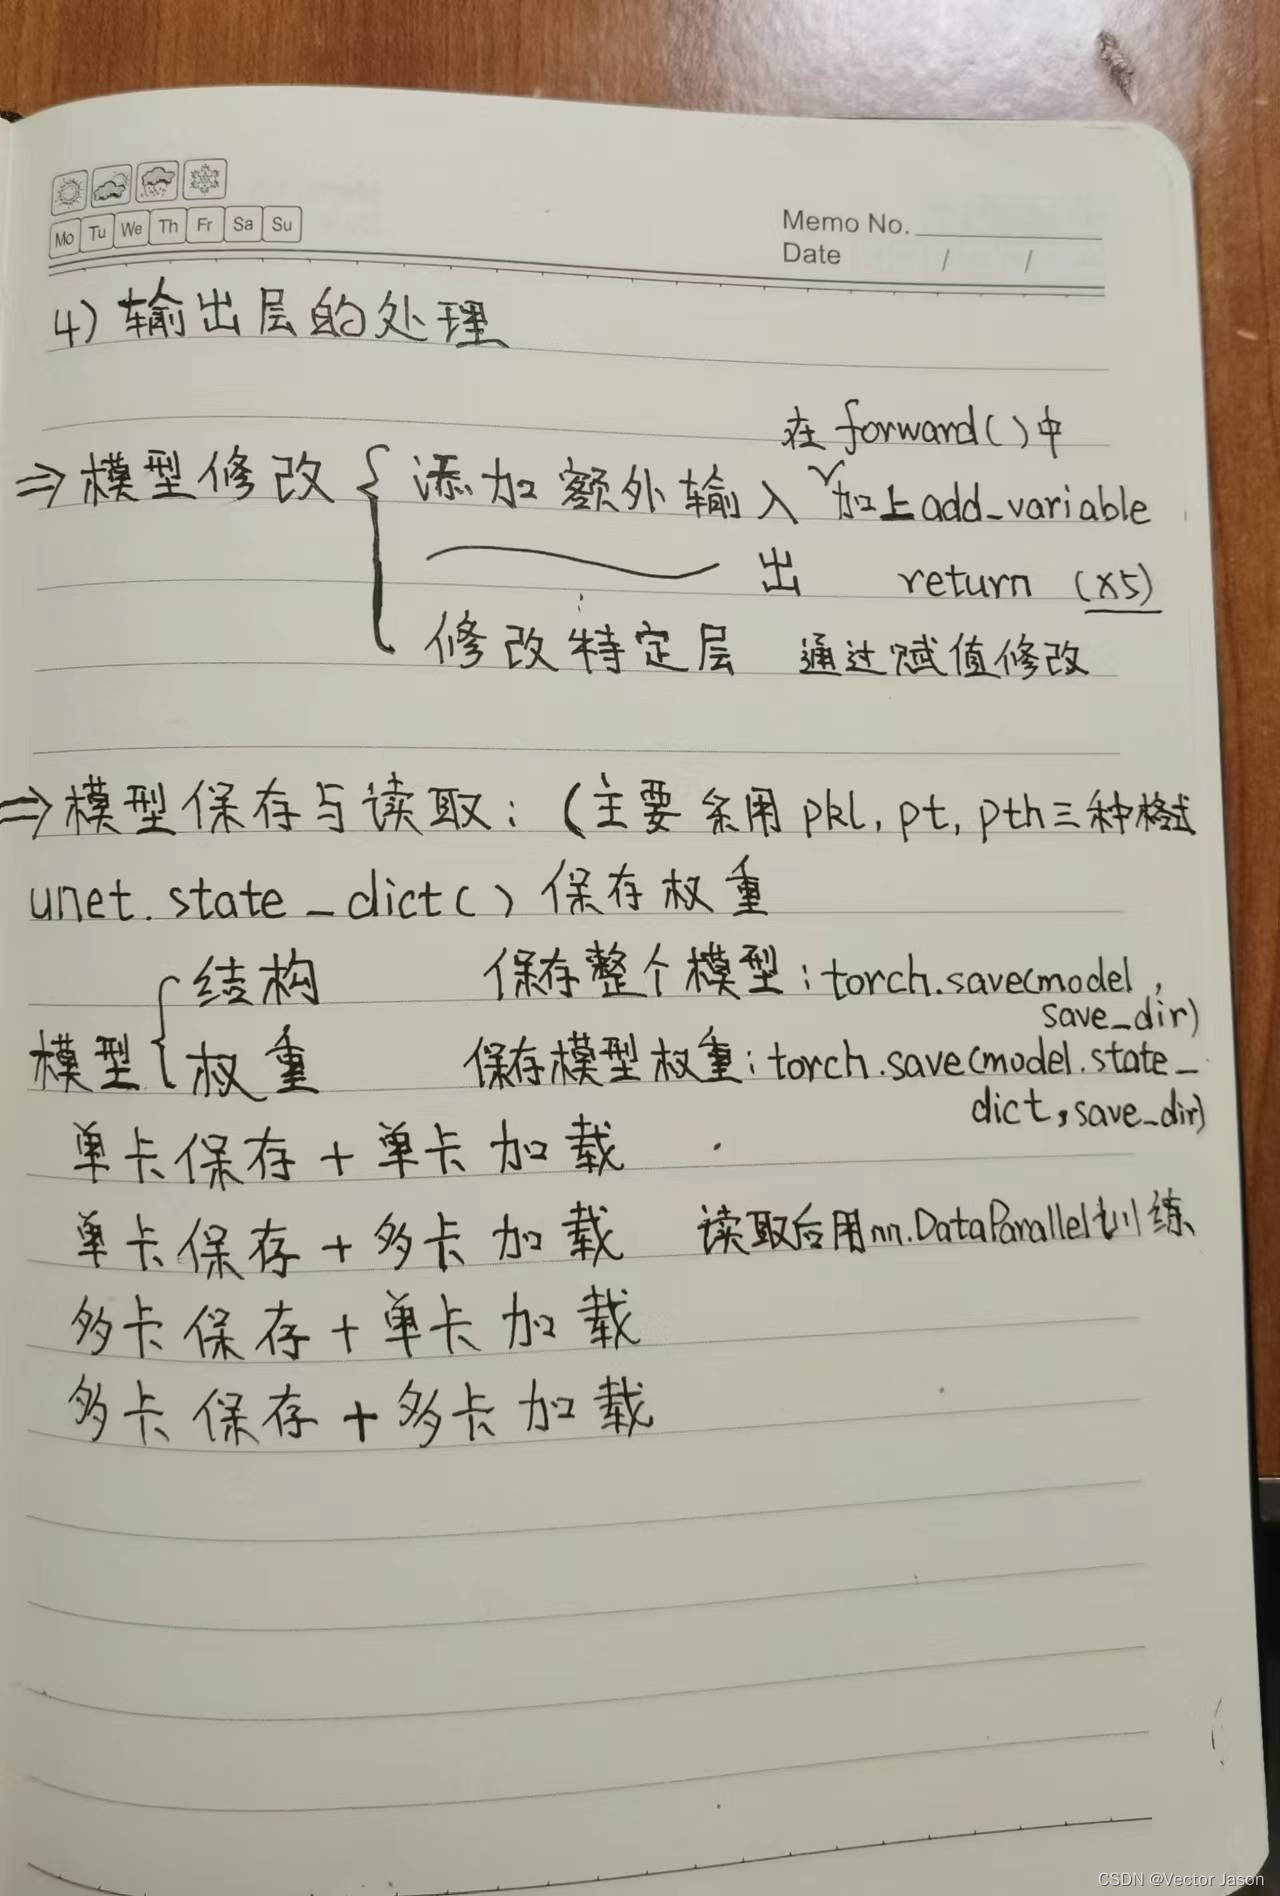 Mo Tu We Th Fr Sa Su
Memo No.
Date / /
4) 输出层的处理
在 forward() 中
⇒ 模型修改 { 添加额外输入 加上add_variable
出 return (x5)
修改特定层 通过赋值修改
⇒ 模型保存与读取: (主要采用 pkl, pt, pth三种格式
unet.state_dict() 保存权重
结构 保存整个模型: torch.save(model,
save_dir)
模型 { 权重 保存模型权重: torch.save(model.state_
dict, save_dir)
单卡保存 + 单卡加载
单卡保存 + 多卡加载 读取后用nn.DataParallel训练
多卡保存 + 单卡加载
多卡保存 + 多卡加载
CSDN @Vector Jason